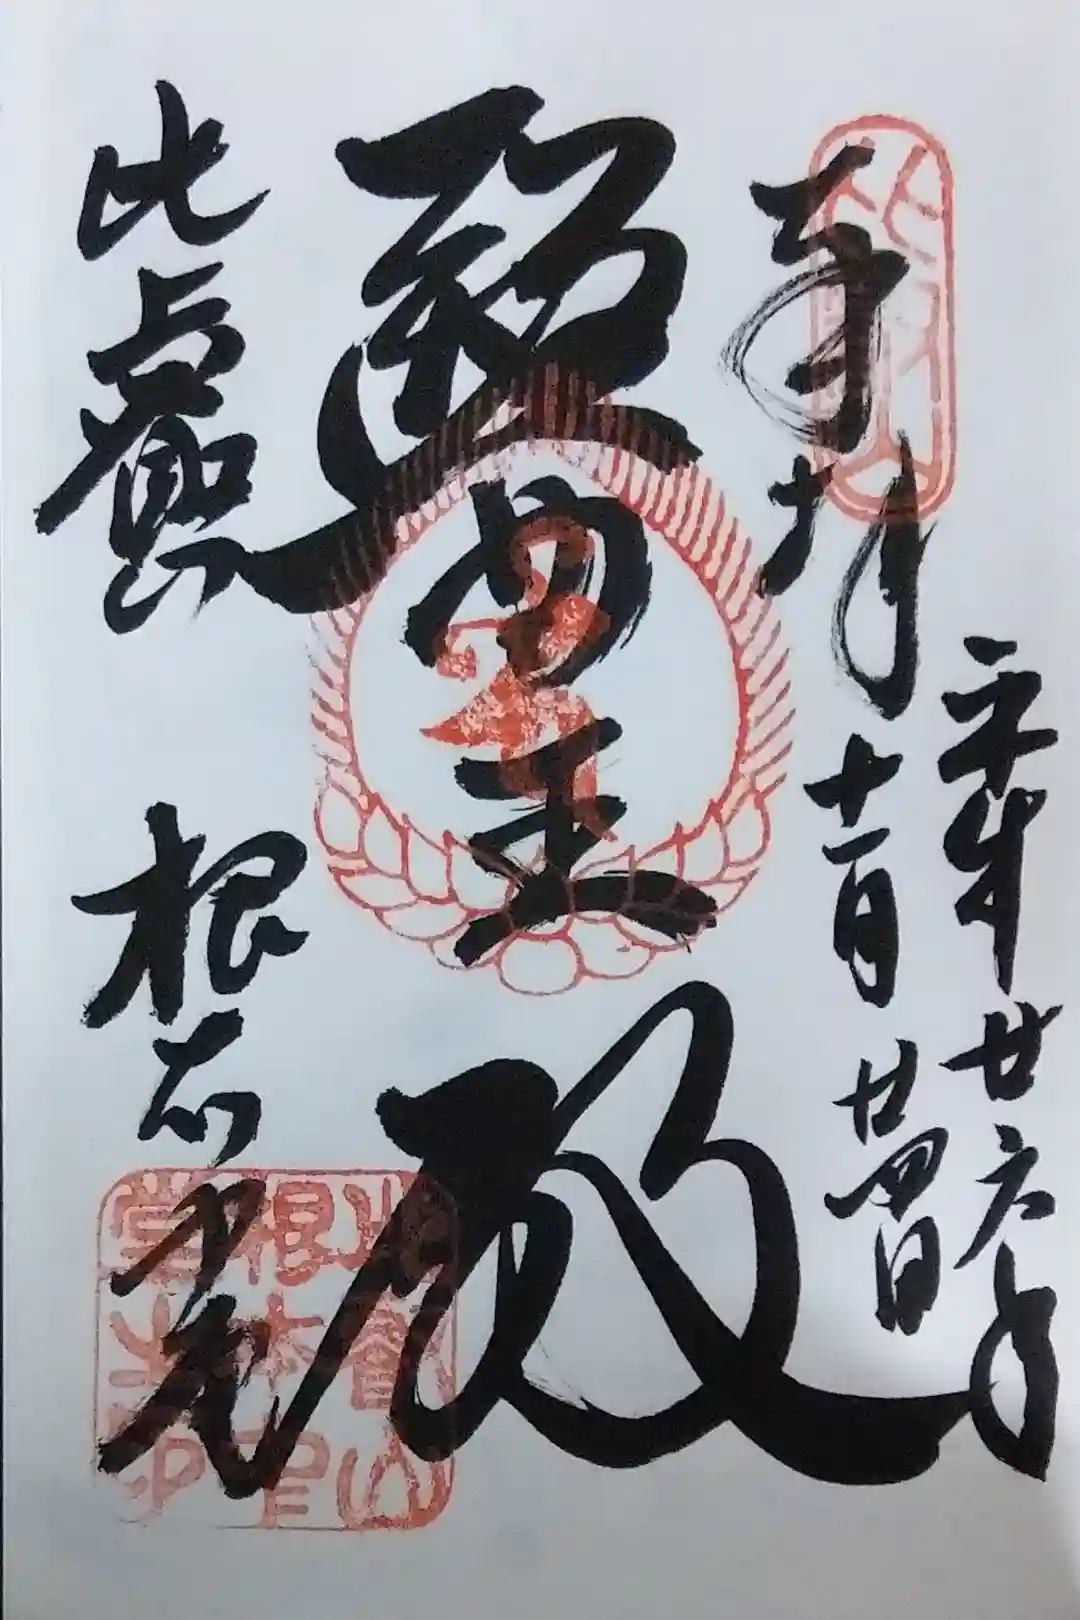 奉拝
平成廿六年
十一月廿四日
醫王殿
比叡山
根本中堂
比叡山
根本中
堂之印